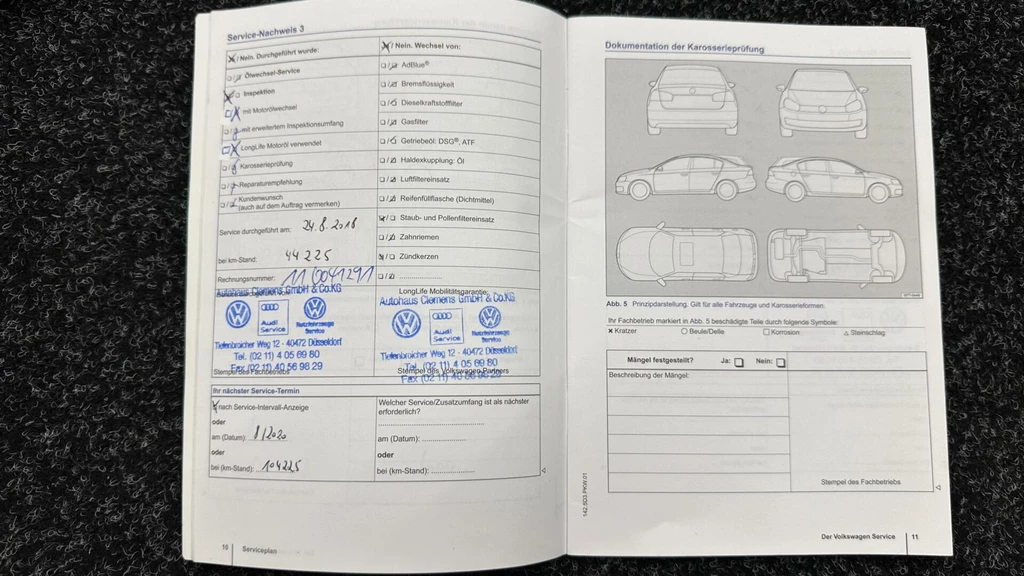 Service-Nachweis 3
/ Nein. Durchgeführt wurde:
Ölwechsel-Service
Inspektion
mit Motorölwechsel
mit erweitertem Inspektionsumfang
LongLife Motoröl verwendet
Karosserieprüfung
Reparaturempfehlung
Kundenwunsch
(auch auf dem Auftrag vermerken)
Service durchgeführt am: 24.8.2018
bei km-Stand: 44225
Rechnungsnummer:
/ Nein. Wechsel von:
AdBlue®
Bremsflüssigkeit
Dieselkraftstofffilter
Gasfilter
Getriebeöl: DSG®, ATF
Haldexkupplung: Öl
Luftfiltereinsatz
Reifenfüllflasche (Dichtmittel)
Staub- und Pollenfiltereinsatz
Zahnriemen
Zündkerzen
LongLife Mobilitätsgarantie:
Autohaus Clemens GmbH & Co.KG
Audi
Service
Nutzfahrzeuge
Service
Tiefenbroicher Weg 12 - 40472 Düsseldorf
Tel. (02 11) 4 05 69 80
Fax (02 11) 40 56 98 29
Stempel des Fachbetriebs
Autohaus Clemens GmbH & Co.KG
Audi
Service
Nutzfahrzeuge
Service
Tiefenbroicher Weg 12 - 40472 Düsseldorf
Tel. (02 11) 4 05 69 80
Stempel des Volkswagen Partners
Fax (02 11) 40 56 98 29
Ihr nächster Service-Termin
nach Service-Intervall-Anzeige
oder
am (Datum): 8/2020
oder
bei (km-Stand): 104225
Welcher Service/Zusatzumfang ist als nächster
erforderlich?
am (Datum):
oder
bei (km-Stand):
10 Serviceplan
Dokumentation der Karosserieprüfung
Abb. 5 Prinzipdarstellung. Gilt für alle Fahrzeuge und Karosserieformen.
Ihr Fachbetrieb markiert in Abb. 5 beschädigte Teile durch folgende Symbole:
Kratzer Beule/Delle Korrosion Steinschlag
Mängel festgestellt? Ja: Nein:
Beschreibung der Mängel:
Stempel des Fachbetriebs
142.5D3.PKW.01
Der Volkswagen Service 11